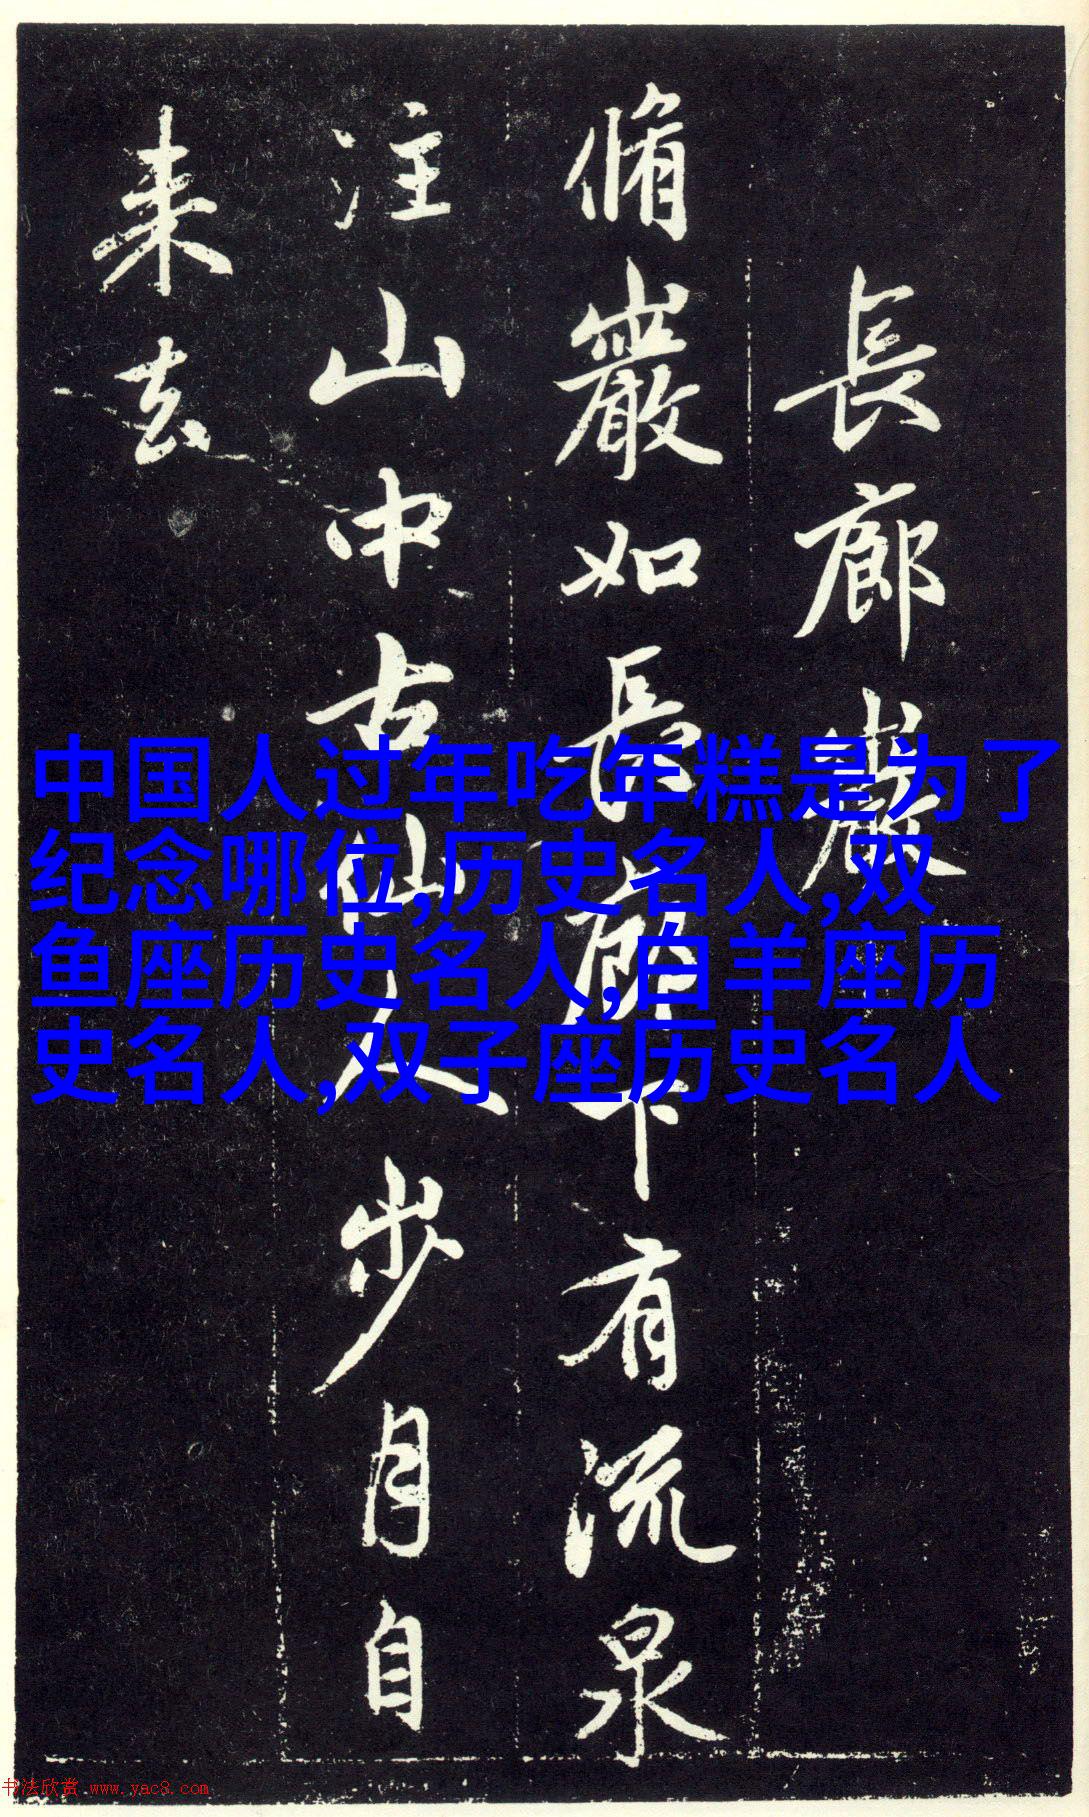 長廊巖
脩巖如長廊下有流泉
注山中古仙人步月自
来去
中国人过年吃年糕是为了
纪念哪位,历史名人,双
鱼座历史名人,白羊座历
史名人,双子座历史名人
书法欣赏 www.yac8.com